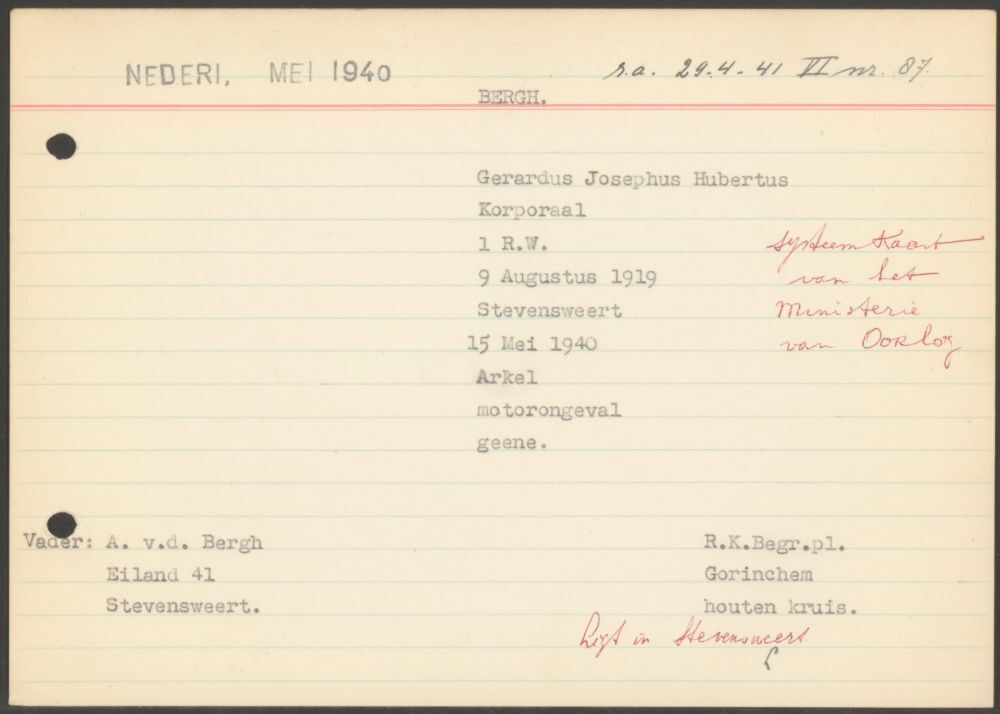 NEDERL, MEI 1940
r.a. 29.4.41 VI nr. 87.
BERGH.
Gerardus Josephus Hubertus
Korporaal
1 R.W.
9 Augustus 1919
Stevensweert
15 Mei 1940
Arkel
motorongeval
geene.
systeem Kaart
van het
Ministerie
van Oorlog
Vader: A. v.d. Bergh
Eiland 41
Stevensweert.
R.K.Begr.pl.
Gorinchem
houten kruis.
Ligt in Stevensweert